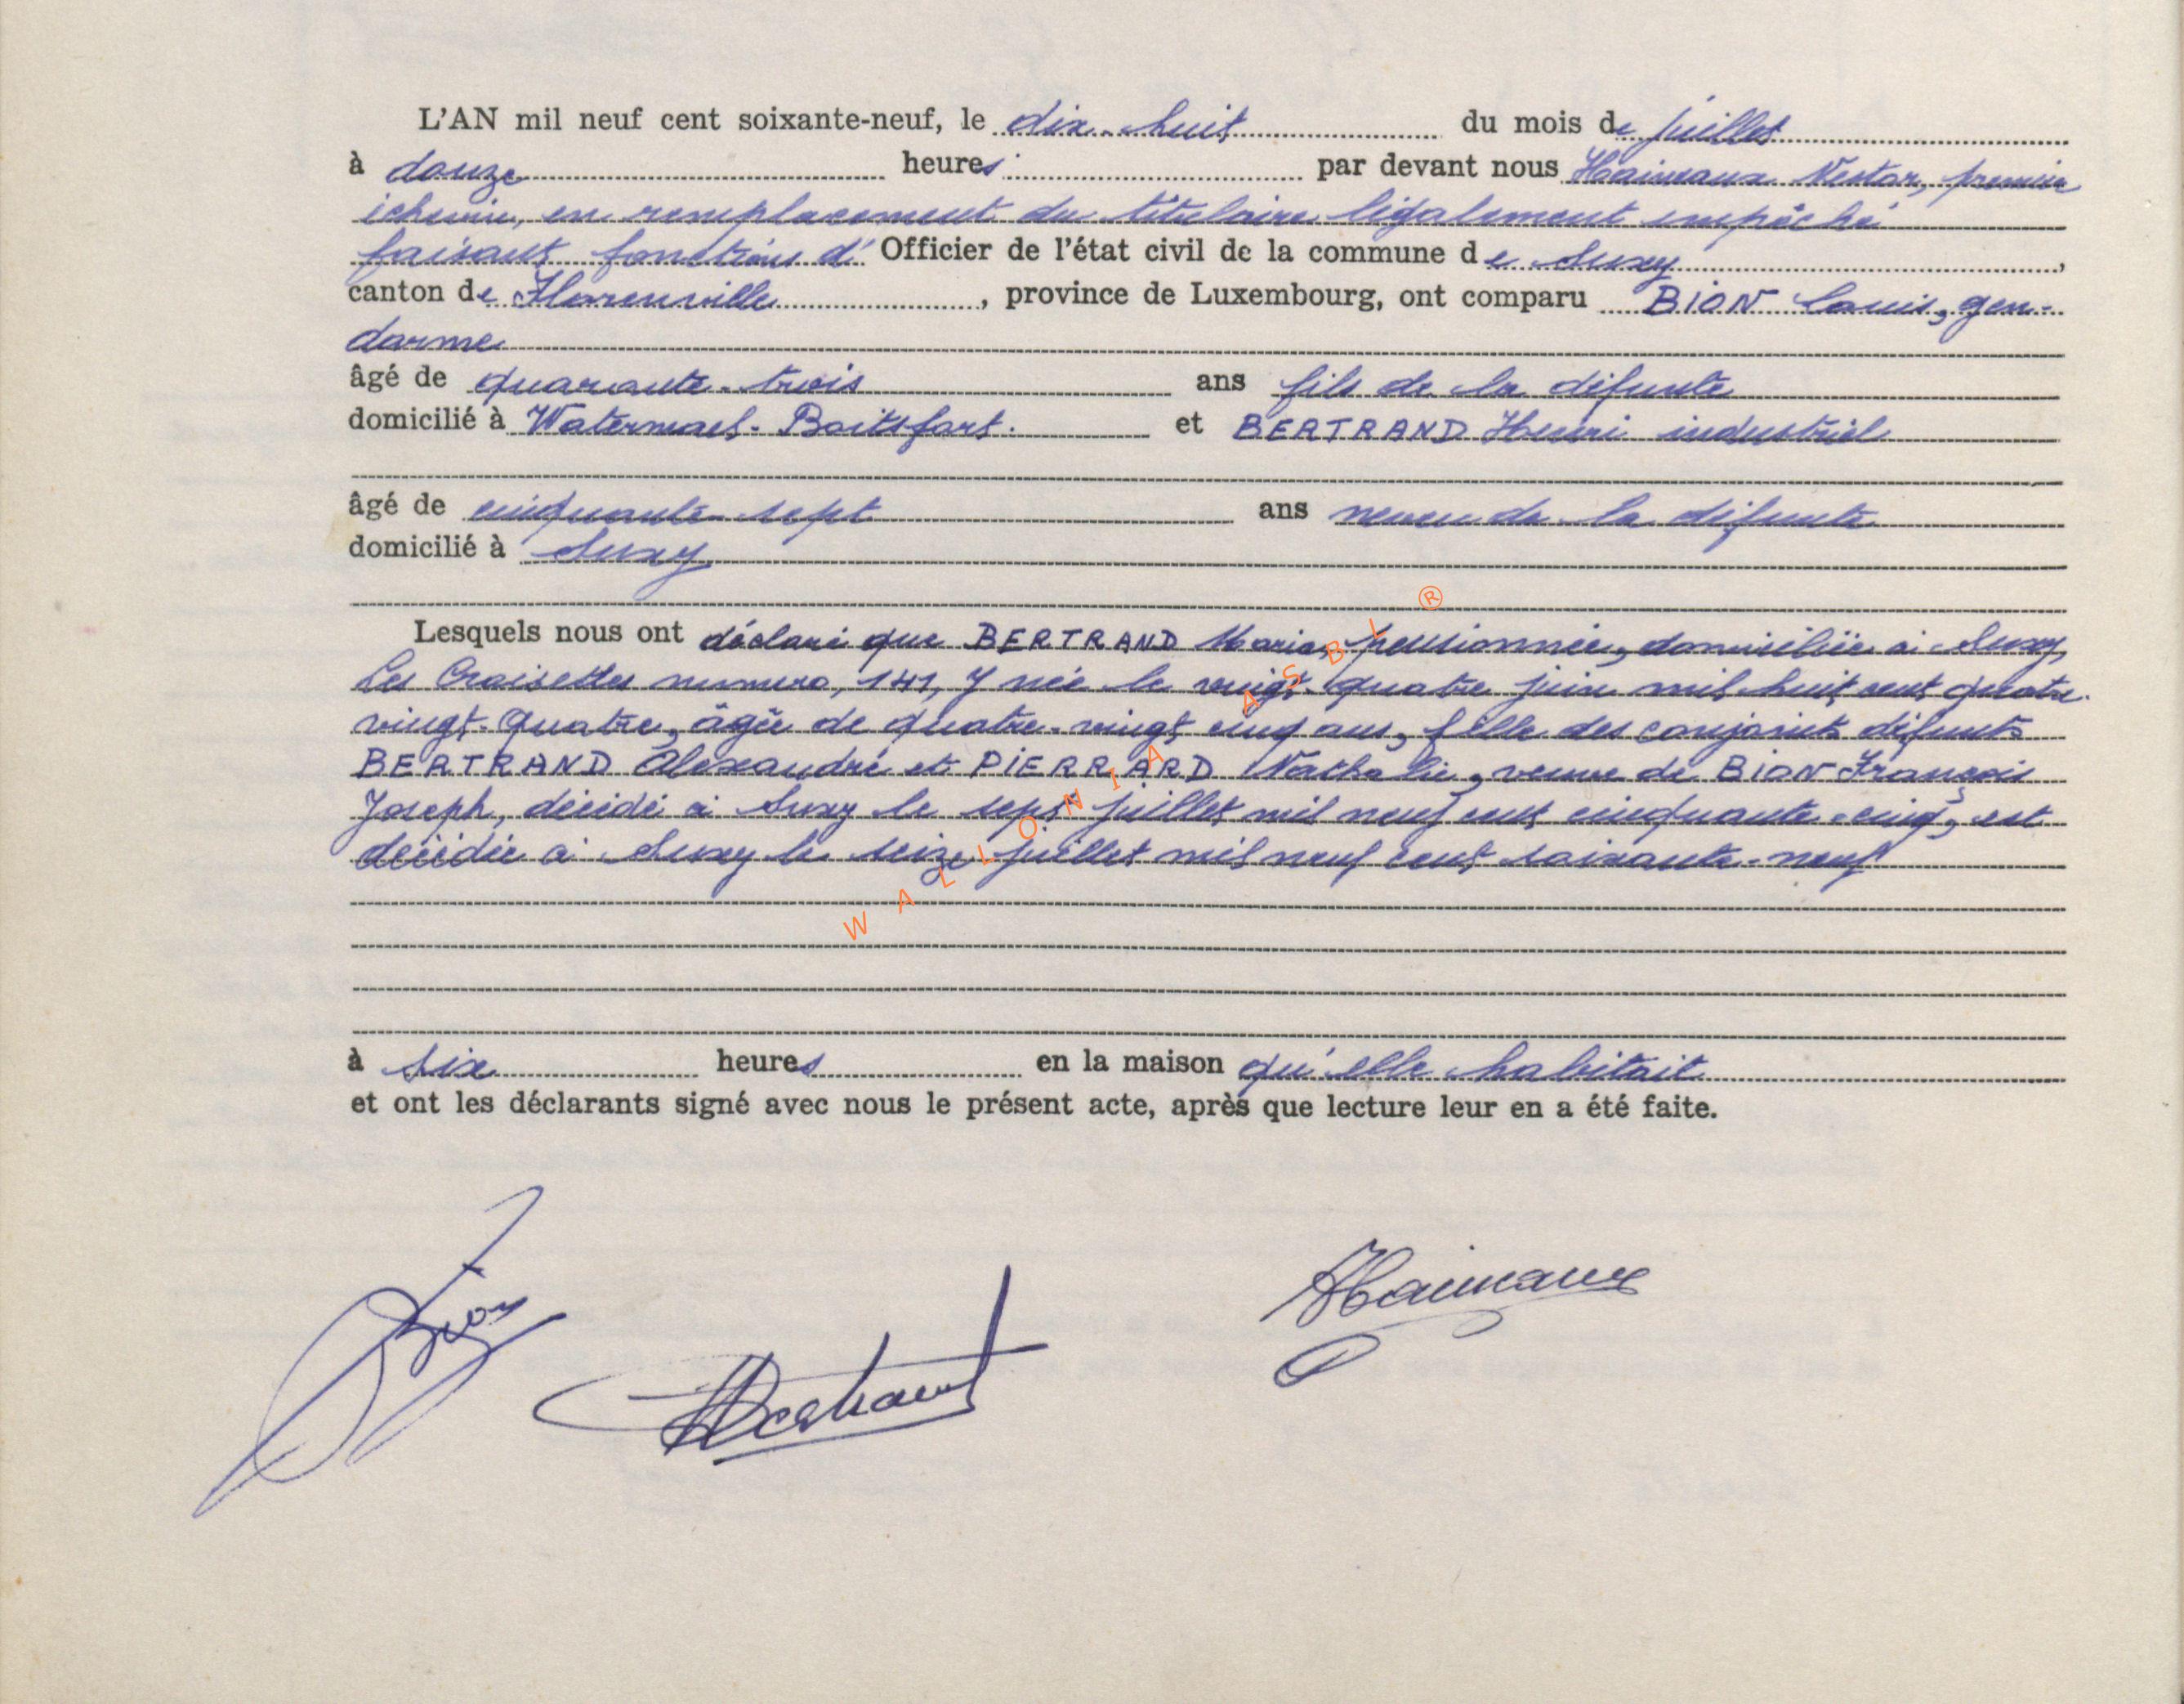 L'AN mil neuf cent soixante-neuf, le dix-huit du mois de juillet
à douze heures par devant nous Haineaux Nestor, premier
échevin, en remplacement du titulaire légalement empêché
faisant fonctions d' Officier de l'état civil de la commune de Suxy,
canton de Florenville, province de Luxembourg, ont comparu BION Louis, gen-
darme
âgé de quarante-trois ans fils de la défunte
domicilié à Watermael-Boitsfort. et BERTRAND Henri industriel
âgé de cinquante-sept ans neveu de la défunte
domicilié à Suxy
Lesquels nous ont déclaré que BERTRAND Maria, pensionnée, domiciliée à Suxy,
Les Croisettes numero, 141, y née le vingt-quatre juin mil huit cent quatre-
vingt-quatre, âgée de quatre-vingt cinq ans, fille des conjoints défunts
BERTRAND Alexandre et PIERRARD Nathalie, veuve de BION François
Joseph, décédé à Suxy le sept juillet mil neuf cent cinquante-cinq, est
décédée à Suxy le seize juillet mil neuf cent soixante-neuf
à six heures en la maison qu'elle habitait
et ont les déclarants signé avec nous le présent acte, après que lecture leur en a été faite.
Bion
HBertrand
Haineaux
WALLONIA ASBL ®